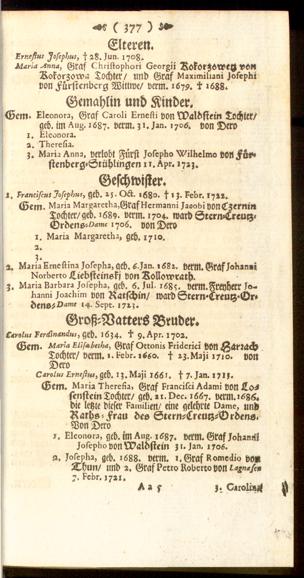 ( 377 )
Elteren.
Ernestus Josephus, † 28. Jun. 1708.
Maria Anna, Graf Christophori Georgii Kokorzowetz von
Kokorzowa Tochter, und Graf Maximiliani Josephi
von Fürstenberg Wittwe, verm. 1679. † 1688.
Gemahlin und Kinder.
Gem. Eleonora, Graf Caroli Ernesti von Waldstein Tochter,
geb. im Aug. 1687. verm. 31. Jan. 1706. von Dero
1. Eleonora.
2. Theresia.
3. Maria Anna, verlobt Fürst Josepho Wilhelmo von Für-
stenberg-Stühlingen 11. Apr. 1723.
Geschwister.
1. Franciscus Josephus, geb. 25. Oct. 1680. † 13. Febr. 1722.
Gem. Maria Margaretha, Graf Hermanni Jacobi von Czernin
Tochter, geb. 1689. verm. 1704. ward Stern-Creutz-
Ordens-Dame 1706. von Dero
1. Maria Margaretha, geb. 1710.
2.
3.
2. Maria Ernestina Josepha, geb. 6. Jan. 1682. verm. Graf Johanni
Norberto Liebsteinski von Kollowrath.
3. Maria Barbara Josepha, geb. 6. Jul. 1685. verm. Freyherr Jo-
hanni Joachim von Ratschin, ward Stern-Creutz-Or-
dens-Dame 14. Sept. 1723.
Groß-Vatters Bruder.
Carolus Ferdinandus, geb. 1634. † 9. Apr. 1702.
Gem. Maria Elisabetha, Graf Ottonis Friderici von Harrach
Tochter, verm. 1. Febr. 1660. † 23. Maji 1710. von
Dero
Carolus Ernestus, geb. 13. Maji 1661. † 7. Jan. 1713.
Gem. Maria Theresia, Graf Francisci Adami von Lo-
senstein Tochter, geb. 21. Dec. 1667. verm. 1686.
die letzte dieser Familien, eine gelehrte Dame, und
Raths-Frau des Stern-Creutz-Ordens.
Von Dero
1. Eleonora, geb. im Aug. 1687. verm. Graf Johanni
Josepho von Waldstein 31. Jan. 1706.
2. Josepha, geb. 1688. verm. 1. Graf Romedio von
Thun, und 2. Graf Petro Roberto von Lagnasco
7. Febr. 1721.
A a 5 3. Carolina